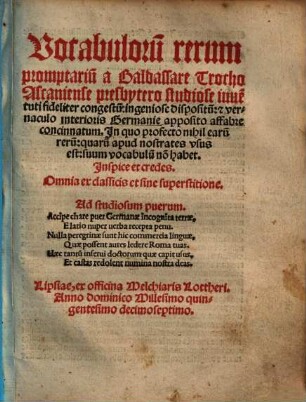 Vocabulorū rerum
promptariū a Baldassare Trocho
Ascaniense presbytero studiose iuuē
tuti fideliter congestū: ingeniose dispositū: ⁊ ver
naculo interioris Germanie apposito affabre
concinnatum. In quo profecto nihil earū
rerū: quarū apud nostrates vsus
est: suum vocabulū nō habet.
Inspice et credes.
Omnia ex classicis et sine superstitione.
Ad studiosum puerum.
Accipe chare puer Germanæ incognita terræ,
E latio nuper uerba recepta penu.
Nulla peregrinæ sunt hic commercia linguæ,
Quæ possent aures ledere Roma tuas.
Hæc tansū inserui doctorum quæ capit usus,
Et castas redolent numina nostra deas.
Lipsiae, ex officina Melchiaris Lottheri.
Anno dominico Millesimo quin
gentesimo decimoseptimo.